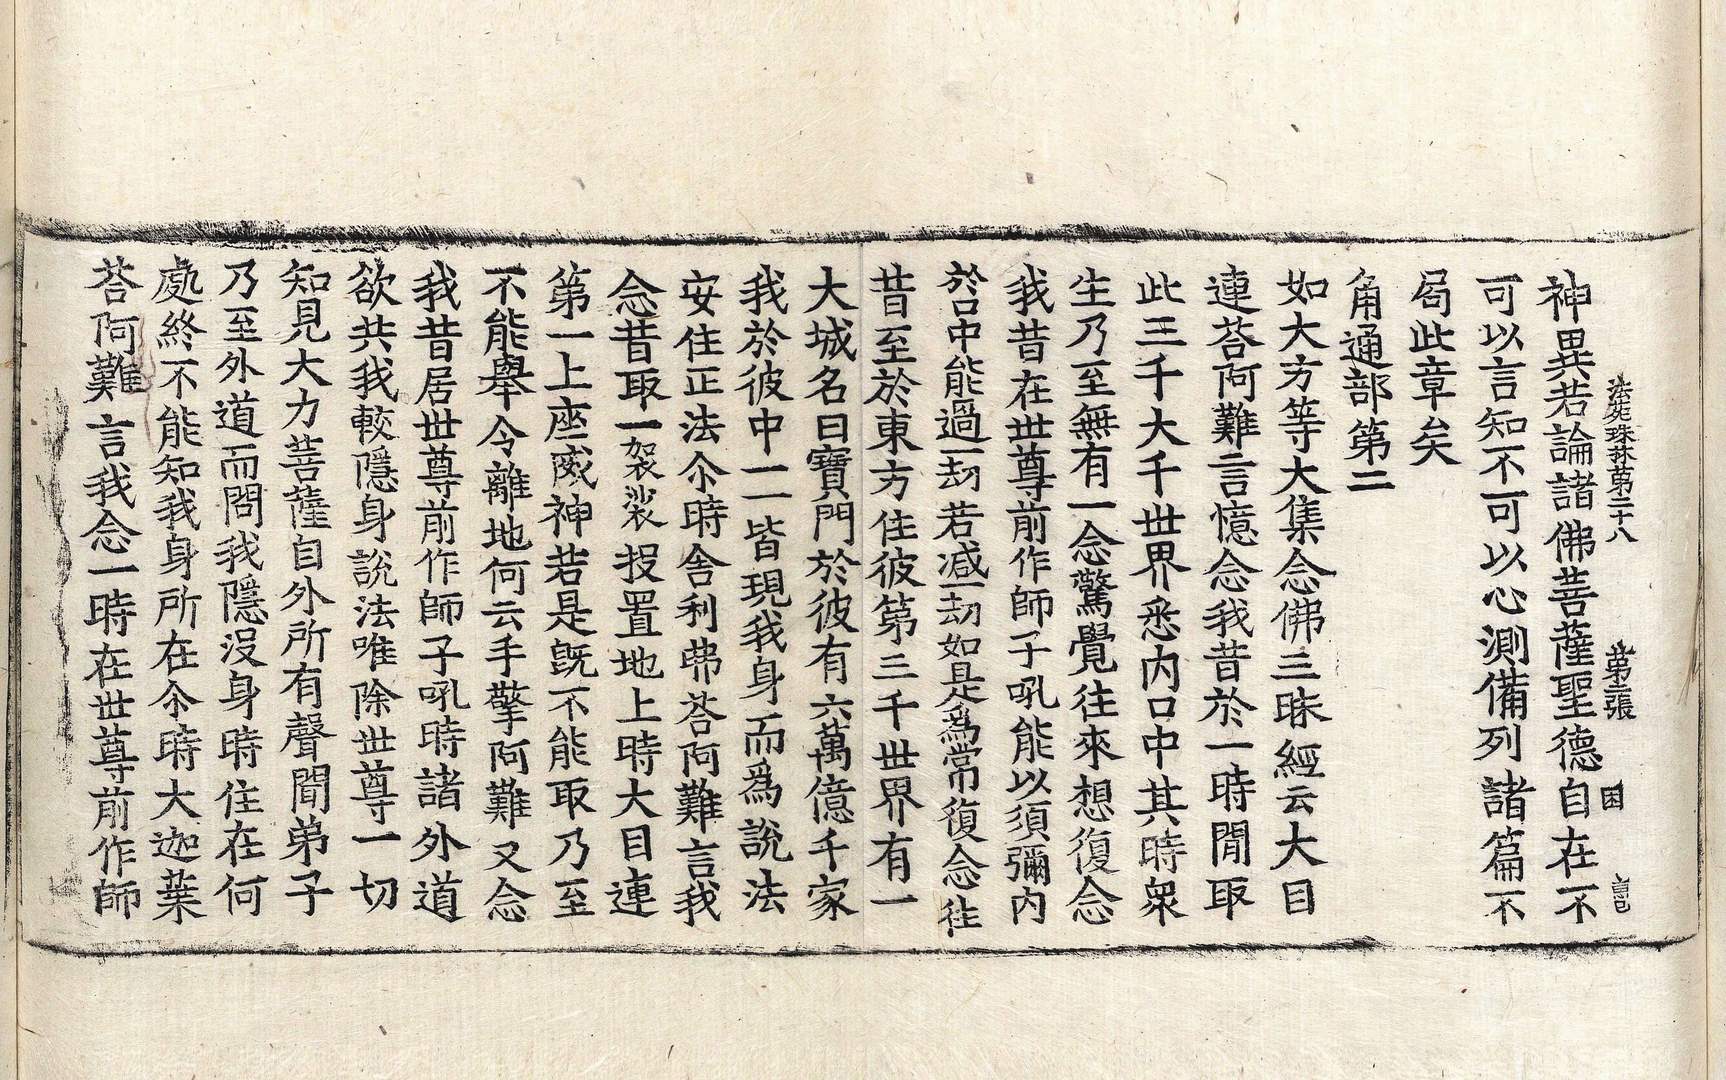 法苑珠林第二十八　第三張　困　言己
神異若論諸佛菩薩聖德自在不
可以言知不可以心測備列諸篇不
局此章矣
角通部第二
如大方等大集念佛三昧經云大目
連荅阿難言憶念我昔於一時閒取
此三千大千世界悉內口中其時衆
生乃至無有一念驚覺往來想復念
我昔在世尊前作師子吼能以須彌內
於口中能過一劫若减一劫如是爲常復念往
昔至於東方住彼第三千世界有一
大城名曰寶門於彼有六萬億千家
我於彼中一一皆現我身而爲說法
安住正法尒時舍利弗荅阿難言我
念昔取一袈裟投置地上時大目連
第一上座威神若是旣不能取乃至
不能舉令離地何云手擎阿難又念
我昔居世尊前作師子吼時諸外道
欲共我較隱身說法唯除世尊一切
知見大力菩薩自外所有聲聞弟子
乃至外道而問我隱沒身時住在何
處終不能知我身所在尒時大迦葉
荅阿難言我念一時在世尊前作師